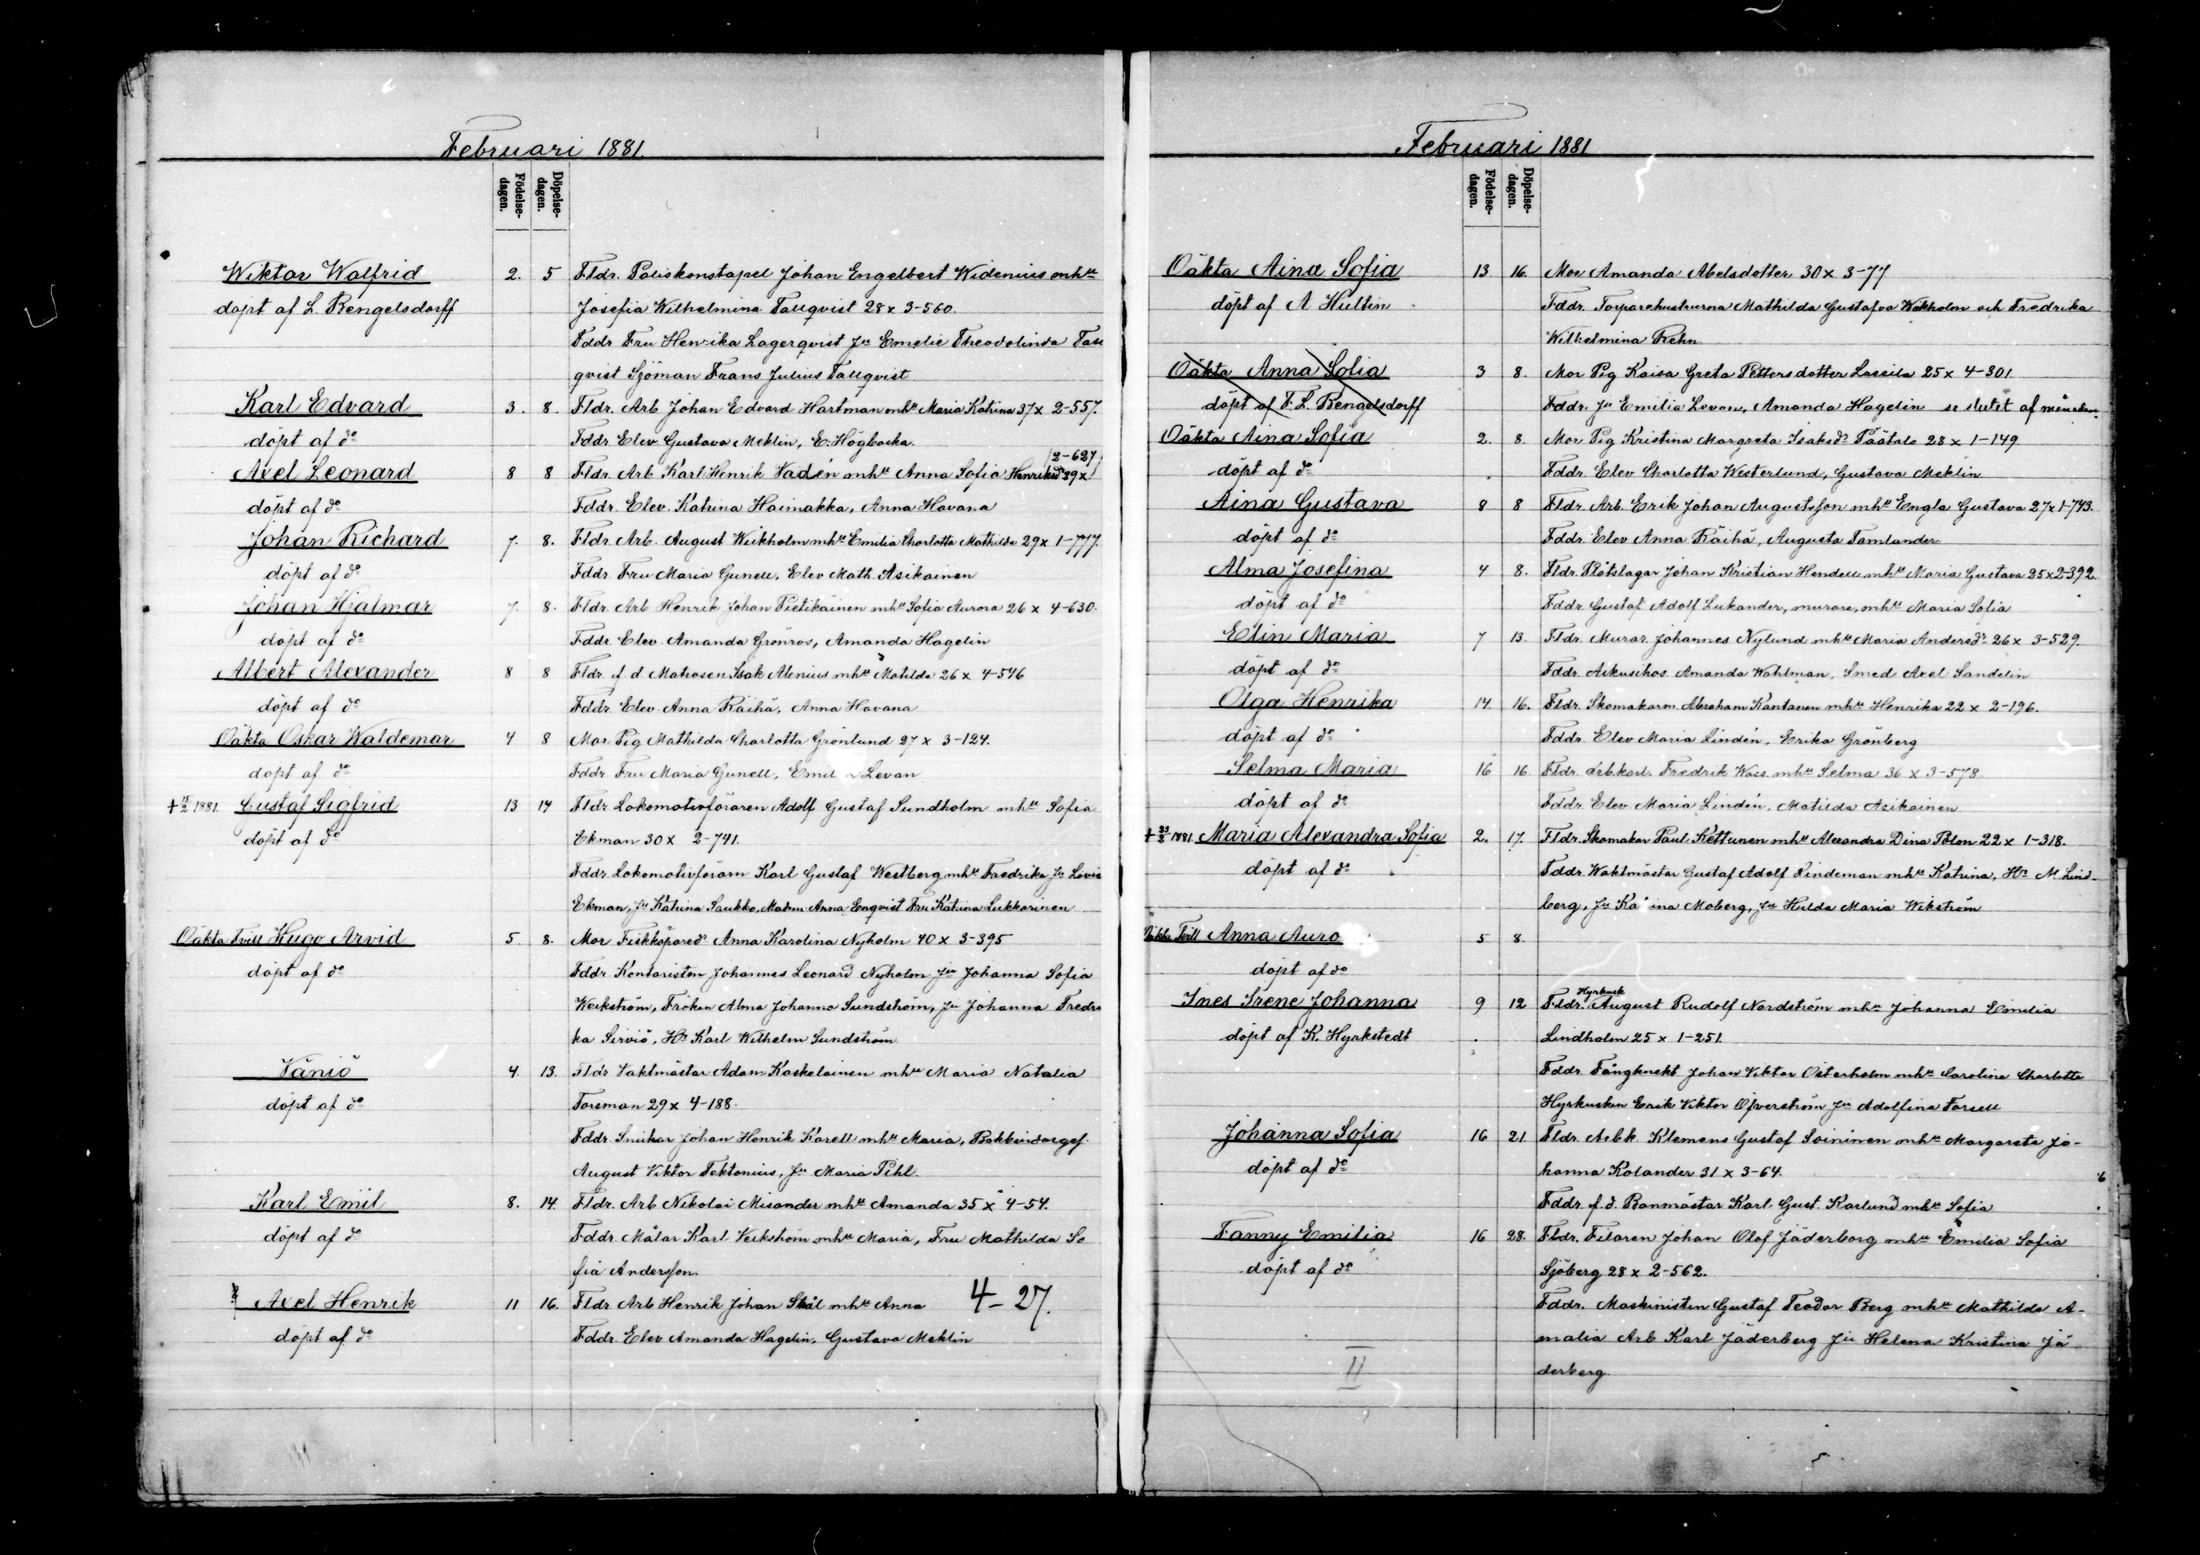 Februari 1881.
Födelse-dagen. Döpelse-dagen.
Wiktor Walfrid 2. 5 Fldr. Poliskonstapel Johan Engelbert Widenius mhu
döpt af L. Rengelsdorff Josefia Wilhelmina Tallqvist 28 x 3-560.
Fddr Fru Henrika Lagerqvist Jn Emelie Theodolinda Tall
qvist Sjöman Frans Julius Tallqvist
Karl Edvard 3. 8. Fldr. Arb Johan Edvard Hartman mhu Maria Katrina 37 x 2-557.
döpt af do Fddr Elev Gustava Meklin, E. Högbacka.
Axel Leonard 8 8 Fldr. Arb Karl Henrik Vadén mhu Anna Sofia Henriksdr 39 x 2-627
döpt af do Fddr. Elev. Katrina Haimakka, Anna Havana
Johan Richard 7. 8. Fldr Arb. August Wiikholm mhu Emilia Charlotta Mathilda 29 x 1-777.
döpt af do Fddr. Fru Maria Gunell, Elev Math. Asikainen
Johan Hjalmar 7. 8. Fldr. Arb Henrik Johan Pietikäinen mhu Sofia Aurora 26 x 4-630.
döpt af do Fddr Elev. Amanda Grönros, Amanda Hagelin
Albert Alexander 8 8 Fldr. f. d. Matrosen Isak Alenius mhu Matilda 26 x 4-546
döpt af do Fddr. Elev. Anna Räihä, Anna Havana
Oäkta Oskar Waldemar 4 8 Mor Pig Mathilda Charlotta Grönlund 27 x 3-124.
döpt af do Fddr Fru Maria Gunell, Emil Levan
+ 15/2 1881. Gustaf Sigfrid 13 14 Fldr. Lokomotivföraren Adolf Gustaf Sundholm mhu Sofia
döpt af do Ekman 30 x 2-741.
Fddr. Lokomotivföraren Karl Gustaf Westberg mhu Fredrika Jn Lovis
Ekman, Jn Katrina Saukko, Madm Anna Enqvist Fru Katrina Lukkarinen
Oäkta Tvill Hugo Arvid 5 8. Mor Fiskköparedr Anna Karolina Nyholm 40 x 3-395
döpt af do Fddr Kontoristen Johannes Leonard Nyholm Jn Johanna Sofia
Weckström, Fröken Alma Johanna Sundström, Jn Johanna Fredri
ka Sirviö, Hr Karl Wilhelm Sundström
Väniö 4. 13. Fldr Vaktmästar Adam Kaskelainen mhu Maria Natalia
döpt af do Forsman 29 x 4-188.
Fddr. Snickar Johan Henrik Korell mhu Maria, Bokbindargef.
August Viktor Tektonius, Jn Maria Pihl.
Karl Emil 8. 14. Fldr. Arb Nikolai Misander mhu Amanda 35 x 4-54.
döpt af do Fddr Målar Karl Veckström mhu Maria, Fru Mathilda So
fia Andersson.
Axel Henrik 11 16. Fldr Arb Henrik Johan Skål mhu Anna 4-27.
döpt af do Fddr. Elev Amanda Hagelin, Gustava Meklin
Februari 1881
Födelse-dagen. Döpelse-dagen.
Oäkta Aina Sofia 13 16. Mor Amanda Abelsdotter 30 x 3-77
döpt af A Hultin Fddr. Torparehustrurna Mathilda Gustafva Wikholm och Fredrika
Wilhelmina Rehn
Oäkta Anna Sofia 3 8. Mor Pig Kaisa Greta Pettersdotter Lassila 25 x 4-301
döpt af F. L. Rengelsdorff Fddr. Jn Emilia Levan, Amanda Hagelin se slutet af månaden.
Oäkta Aina Sofia 2. 8. Mor Pig Kristina Margreta Isaksdr Päätalo 28 x 1-149
döpt af do Fddr. Elev Charlotta Westerlund, Gustava Meklin
Aina Gustava 8 8 Fldr. Arb. Erik Johan Augustsson mhu Engla Gustava 27 x 1-743.
döpt af do Fddr. Elev Anna Räihä, Augusta Tamlander
Alma Josefina 4 8. Fldr. Plåtslagar Johan Kristian Hendell mhu Maria Gustava 25 x 2-392.
döpt af do Fddr Gustaf Adolf Lukander, murare, mhu Maria Sofia
Elin Maria 7 13. Fldr. Murar. Johannes Nylund mhu Maria Andersdr 26 x 3-529.
döpt af do Fddr. Amanda Wahlman, Smed Axel Sandelin
Olga Henrika 14 16. Fldr. Skomakarm. Abraham Kantanen mhu Henrika 22 x 2-196.
döpt af do Fddr. Elev Maria Lindén, Erika Grönberg
Selma Maria 16 16 Fldr. Arb.karl. Fredrik Wass mhu Selma 36 x 3-578
döpt af do Fddr. Elev. Maria Lindén, Matilda Asikainen
+ 23/2 1881. Maria Alexandra Sofia 2. 17. Fldr. Skomakar Paul Kettunen mhu Alexandra Dina Polon 22 x 1-318.
döpt af do Fddr. Waktmästar Gustaf Adolf Lindeman mhu Katrina, Hr M. Lind-
berg, Jn Ka ina Moberg, Jn Hulda Maria Wikström
Oäkta Tvill Anna Auro 5 8.
döpt af do
Ines Irene Johanna 9 12 Fldr. Hyrkusk August Rudolf Nordström mhu Johanna Emilia
döpt af K. Hyrkstedt Lindholm 25 x 1-251.
Fddr. Fångknekt Johan Viktor Österholm mhu Carolina Charlotta
Hyrkusken Erik Viktor Öfverström Jn Adolfina Forsell
Johanna Sofia 16 21 Fldr. Arbk. Klemens Gustaf Soininen mhu Margareta Jo-
döpt af do hanna Kolander 31 x 3-64.
Fddr. f. d. Banmästar Karl Gust. Karlund mhu Sofia
Fanny Emilia 16 28. Fldr. Filaren Johan Olof Jäderborg mhu Emilia Sofia
döpt af do Sjöberg 28 x 2-562.
Fddr. Maskinisten Gustaf Teodor Berg mhu Mathilda A-
malia Arb Karl Jäderberg Jn Helena Kristina Jä
derberg.
II